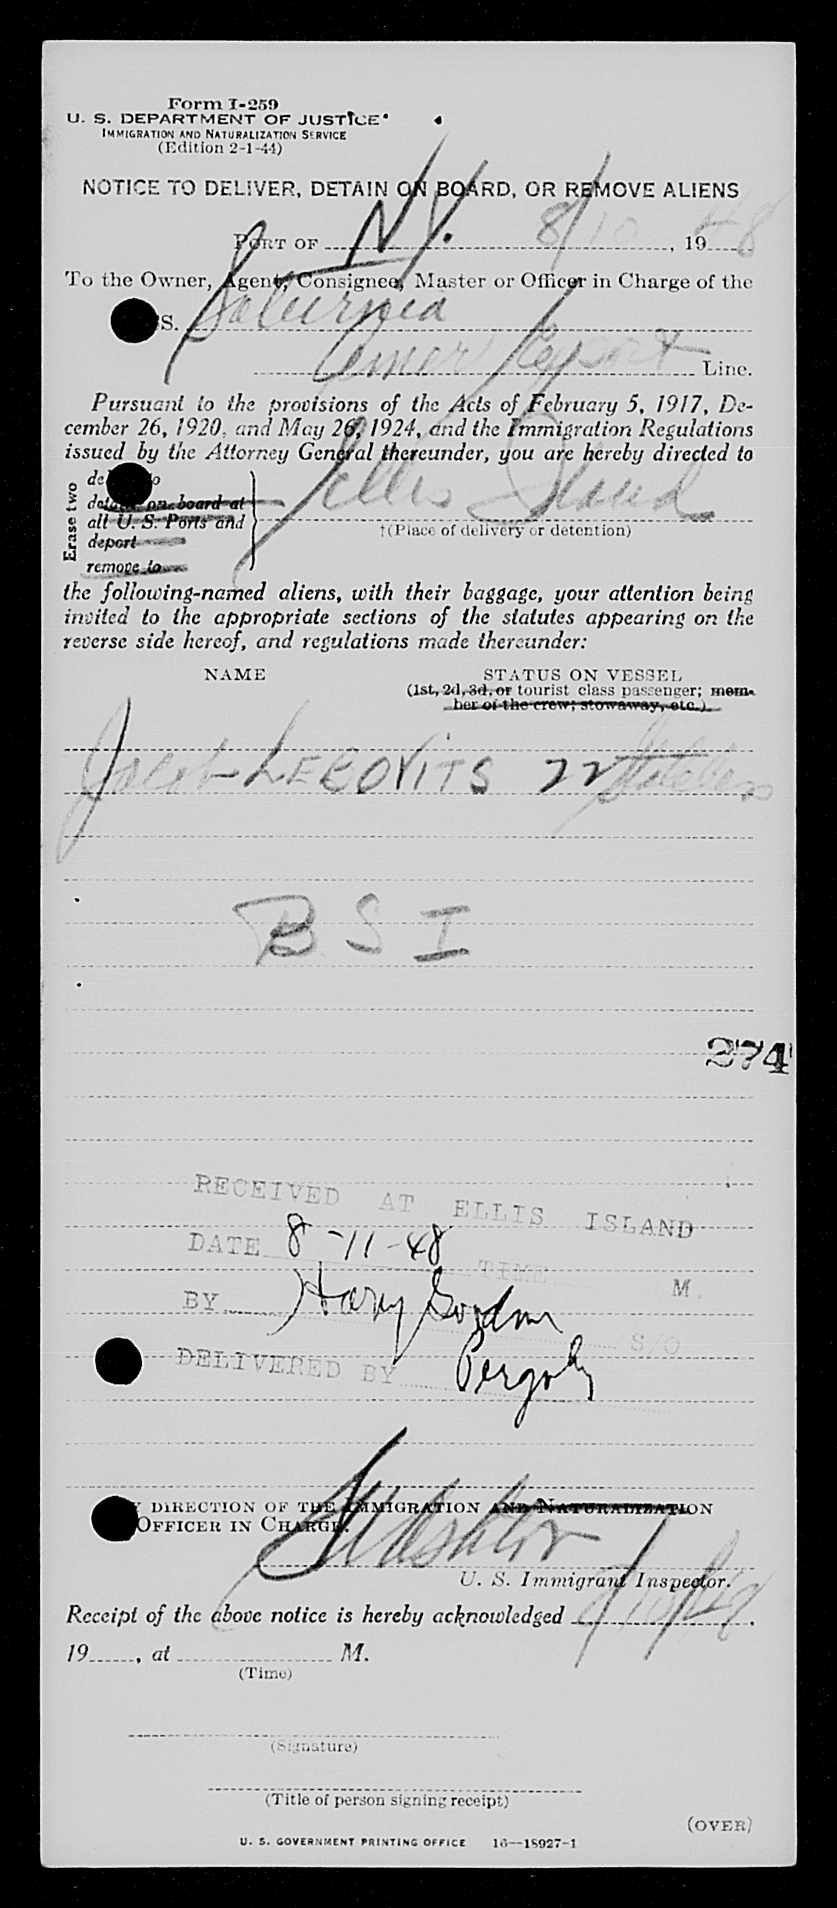 Form I-259
U. S. DEPARTMENT OF JUSTICE
IMMIGRATION AND NATURALIZATION SERVICE
(Edition 2-1-44)
NOTICE TO DELIVER, DETAIN ON BOARD, OR REMOVE ALIENS
PORT OF N.Y. 8/10, 1948
To the Owner, Agent, Consignee, Master or Officer in Charge of the
S. Saturnia
Amer Export Line.
Pursuant to the provisions of the Acts of February 5, 1917, De-
cember 26, 1920, and May 26, 1924, and the Immigration Regulations
issued by the Attorney General thereunder, you are hereby directed to
Erase two
detain on board at
all U. S. Ports and
deport
remove to
Ellis Island
†(Place of delivery or detention)
the following-named aliens, with their baggage, your attention being
invited to the appropriate sections of the statutes appearing on the
reverse side hereof, and regulations made thereunder:
NAME STATUS ON VESSEL
(1st, 2d, 3d, or tourist class passenger; mem-
ber of the crew; stowaway, etc.)
Jacob LEBOVITS 22
B S I
274
RECEIVED AT ELLIS ISLAND
DATE 8-11-48 TIME M.
BY Harry Gordon S/O
DELIVERED BY
DIRECTION OF THE IMMIGRATION AND NATURALIZATION
OFFICER IN CHARGE.
U. S. Immigrant Inspector.
Receipt of the above notice is hereby acknowledged 8/10/48.
19, at M.
(Time)
(Signature)
(Title of person signing receipt)
(OVER)
U. S. GOVERNMENT PRINTING OFFICE 16—18927-1